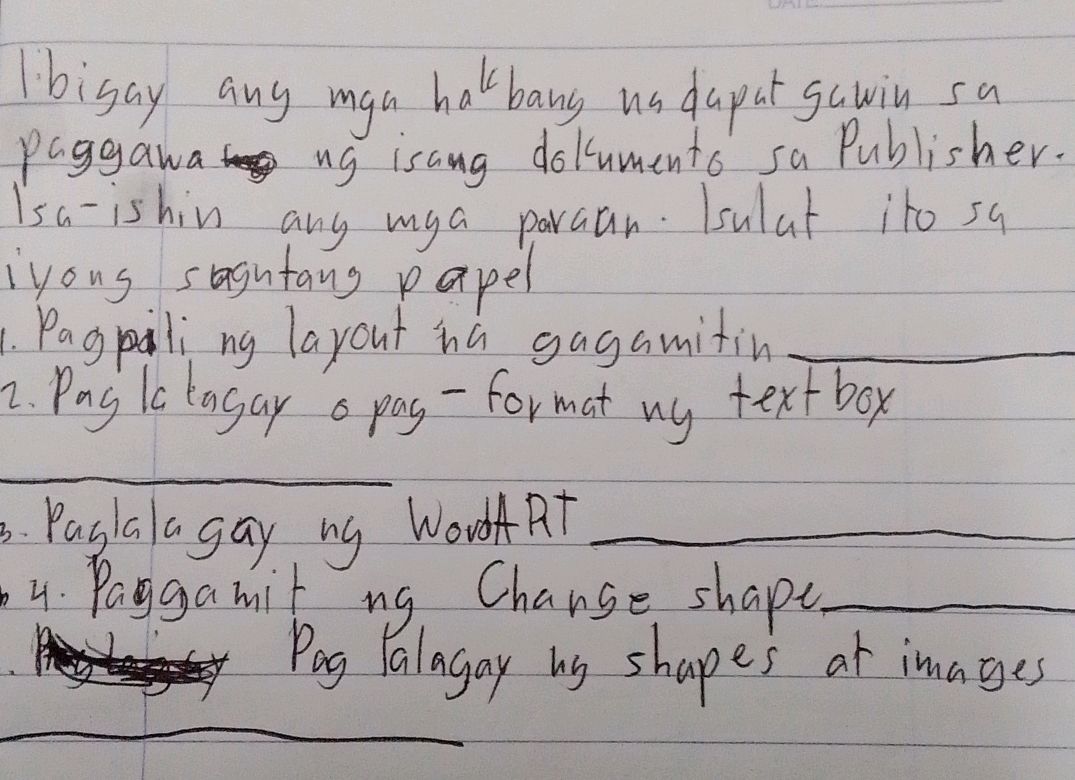 Ibigay ang mga hakbang na dapat gawin sa
paggawa ng isang dokumento sa Publisher.
Isa-ishin ang mga paraan. Isulat ito sa
iyong sagutang papel
1. Pagpili ng layout na gagamitin
2. Paglalagay o pag-format ng text box
3. Paglalagay ng WordART
4. Paggamit ng Change shape
. Paglalagay ng shapes at images